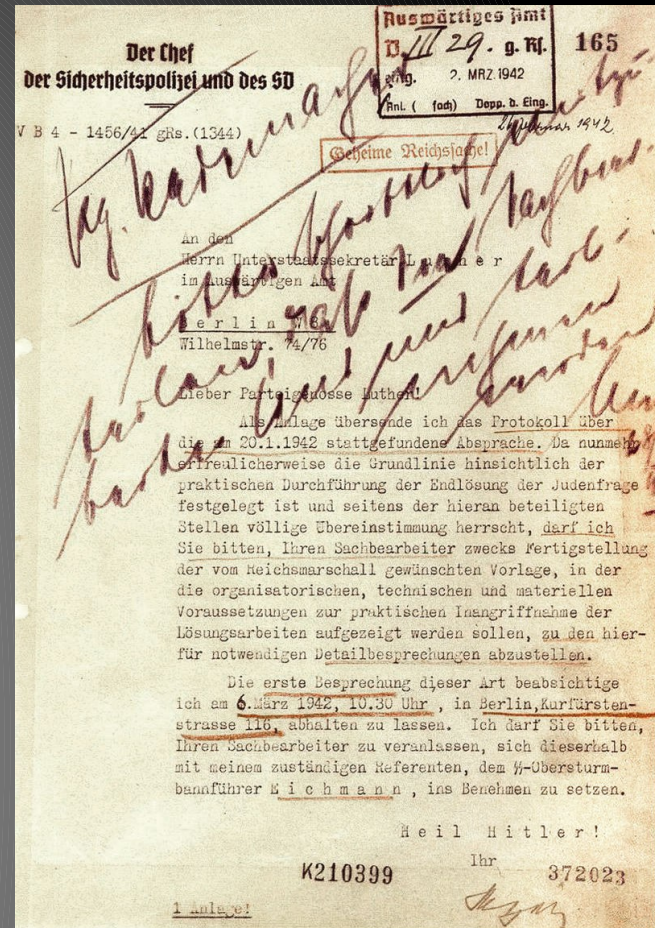 Der Chef
der Sicherheitspolizei und des SD
V B 4 - 1456/41 gRs.(1344)
Auswärtiges Amt
D III 29. g. Rs.
eing. 2. MRZ. 1942
Anl. ( fach) Dopp. d. Eing.
165
Geheime Reichssache!
An den
Herrn Unterstaatssekretär L u t h e r
im Auswärtigen Amt
B e r l i n W 8
Wilhelmstr. 74/76
Lieber Parteigenosse Luther!
Als Anlage übersende ich das Protokoll über
die am 20.1.1942 stattgefundene Absprache. Da nunmehr
erfreulicherweise die Grundlinie hinsichtlich der
praktischen Durchführung der Endlösung der Judenfrage
festgelegt ist und seitens der hieran beteiligten
Stellen völlige Übereinstimmung herrscht, darf ich
Sie bitten, Ihren Sachbearbeiter zwecks Fertigstellung
der vom Reichsmarschall gewünschten Vorlage, in der
die organisatorischen, technischen und materiellen
Voraussetzungen zur praktischen Inangriffnahme der
Lösungsarbeiten aufgezeigt werden sollen, zu den hier-
für notwendigen Detailbesprechungen abzustellen.
Die erste Besprechung dieser Art beabsichtige
ich am 6.März 1942, 10.30 Uhr , in Berlin,Kurfürsten-
strasse 116, abhalten zu lassen. Ich darf Sie bitten,
Ihren Sachbearbeiter zu veranlassen, sich dieserhalb
mit meinem zuständigen Referenten, dem ᛋᛋ-Obersturm-
bannführer E i c h m a n n , ins Benehmen zu setzen.
H e i l H i t l e r !
Ihr
K210399
372023
1 Anlage!